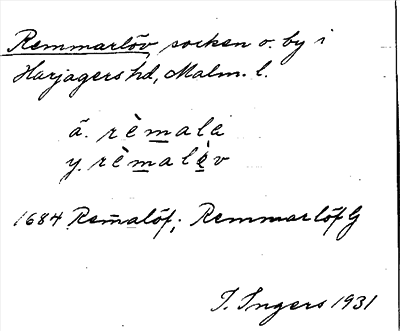 Remmarlöv socken o. by i
Harjagers hd, Malm. l.
ä. rèmala
y. rèmalèv
1684 Rem̄alöf; Remmarlöf G
I. Ingers 1931